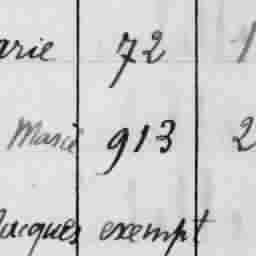 arie 72 1
Marie 913 2
Jacques exempt